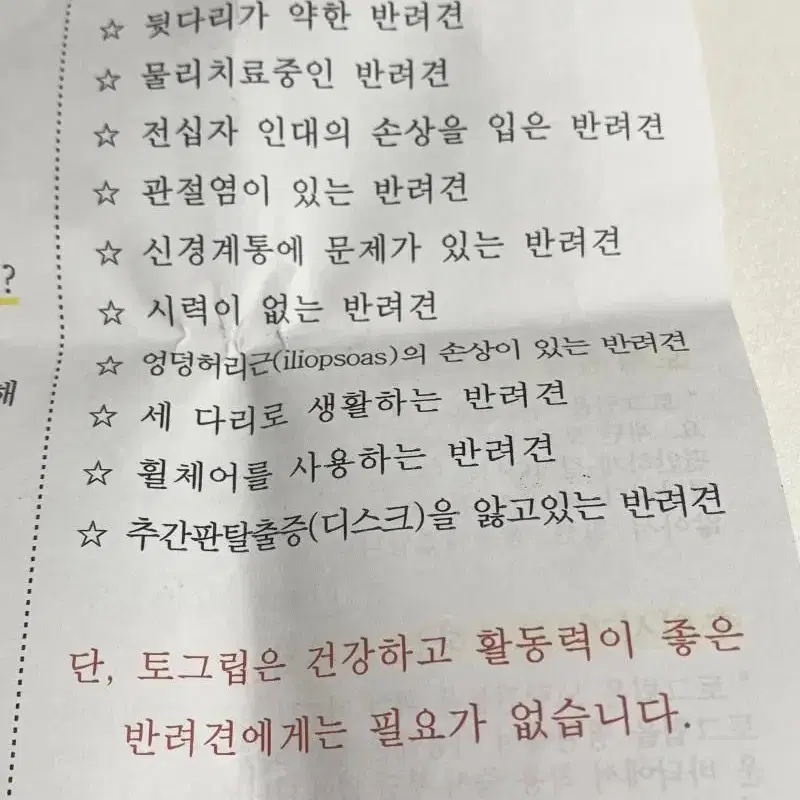 ☆ 뒷다리가 약한 반려견
☆ 물리치료중인 반려견
☆ 전십자 인대의 손상을 입은 반려견
☆ 관절염이 있는 반려견
☆ 신경계통에 문제가 있는 반려견
☆ 시력이 없는 반려견
☆ 엉덩허리근(iliopsoas)의 손상이 있는 반려견
☆ 세 다리로 생활하는 반려견
☆ 휠체어를 사용하는 반려견
☆ 추간판탈출증(디스크)을 앓고있는 반려견
단, 토그립은 건강하고 활동력이 좋은
반려견에게는 필요가 없습니다.
?
해